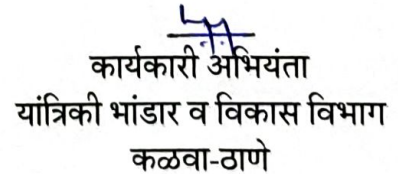 कार्यकारी अभियंता
यांत्रिकी भांडार व विकास विभाग
कळवा-ठाणे